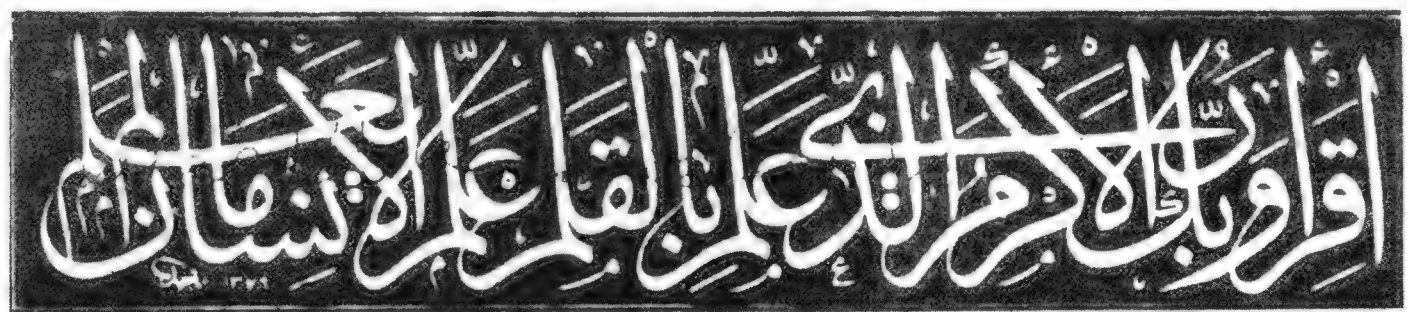 اقرأ وربك الأكرم الذي علم بالقلم علم الإنسان ما لم يعلم
١٣٧٩